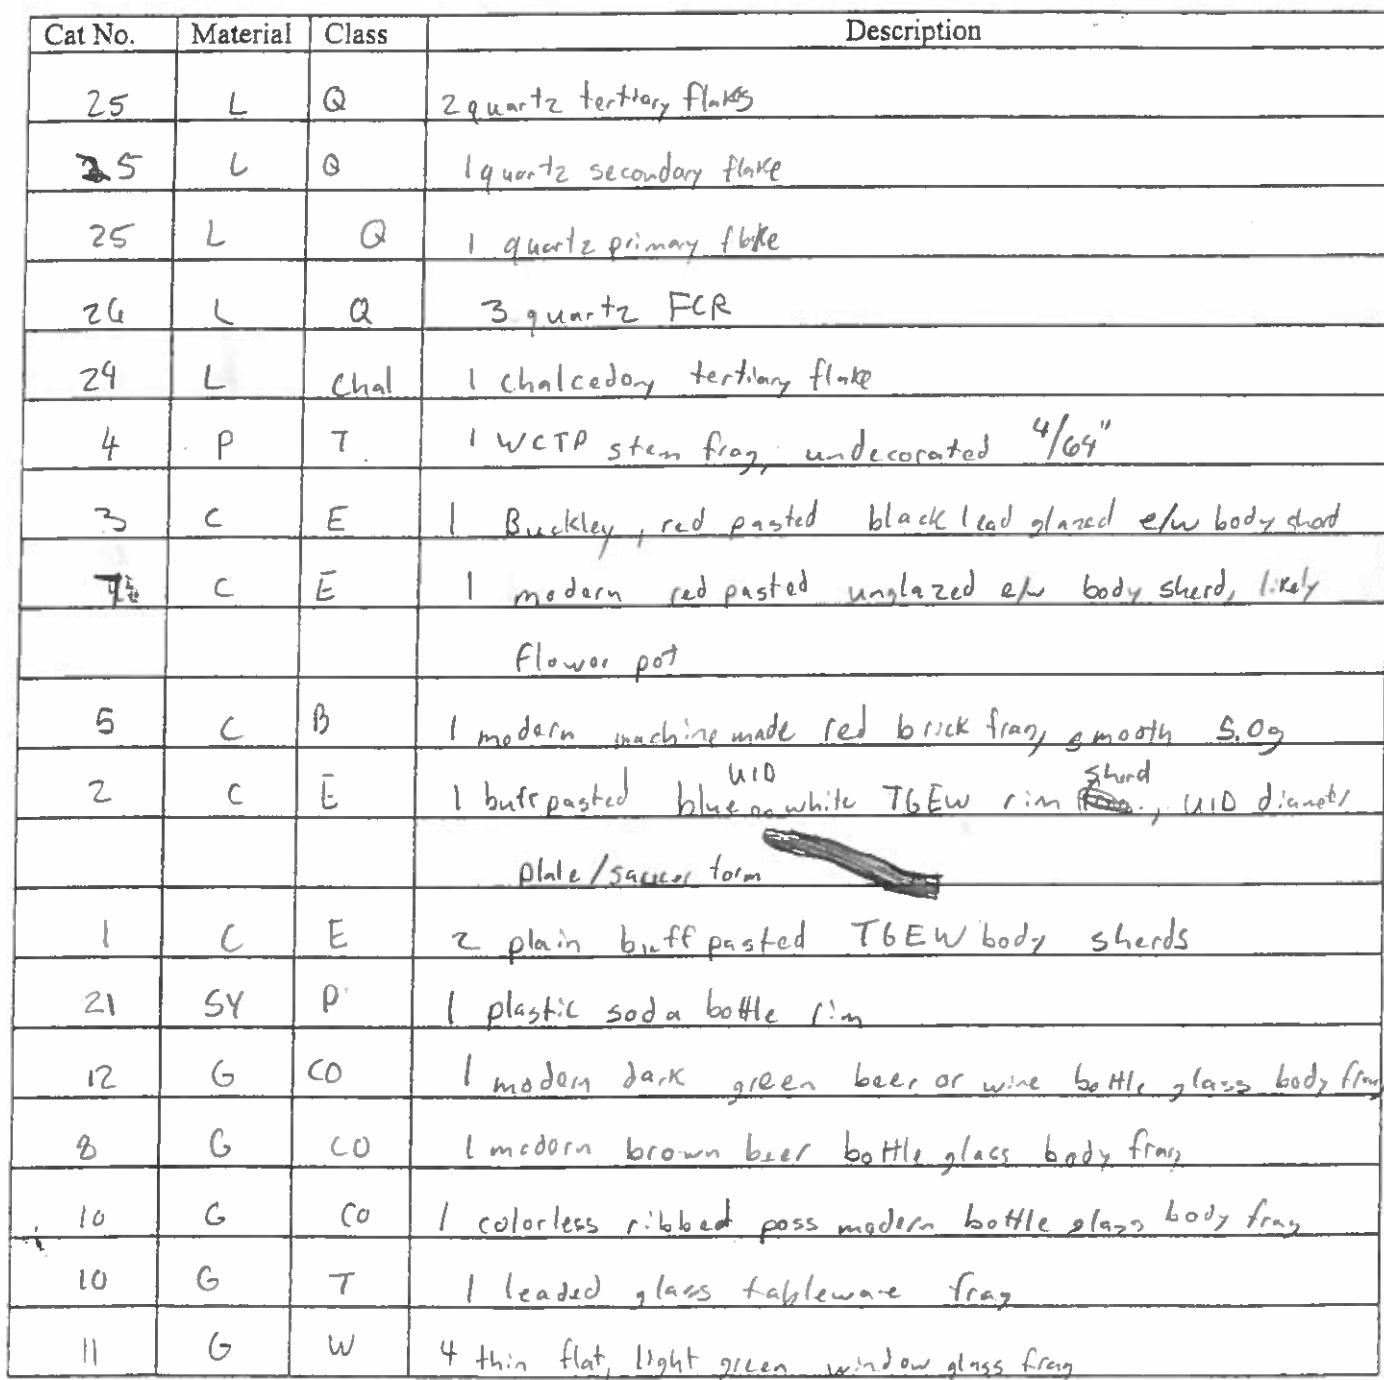 Cat No. Material Class Description
25 L Q 2 quartz tertiary flakes
25 L Q 1 quartz secondary flake
25 L Q 1 quartz primary flake
26 L Q 3 quartz FCR
24 L Chal 1 chalcedony tertiary flake
4 P T 1 WCTP stem frag, undecorated 4/64"
3 C E 1 Buckley, red pasted black lead glazed e/w body sherd
C E 1 modern red pasted unglazed e/w body sherd, likely
flower pot
5 C B 1 modern machine made red brick frag, smooth 5.0g
UID sherd
2 C E 1 buff pasted blue on white TGEW rim , UID diameter
plate/saucer form
1 C E 2 plain buff pasted TGEW body sherds
21 SY P 1 plastic soda bottle rim
12 G CO 1 modern dark green beer or wine bottle glass body frag
8 G CO 1 modern brown beer bottle glass body frag
10 G CO 1 colorless ribbed poss modern bottle glass body frag
10 G T 1 leaded glass tableware frag
11 G W 4 thin flat, light green window glass frag